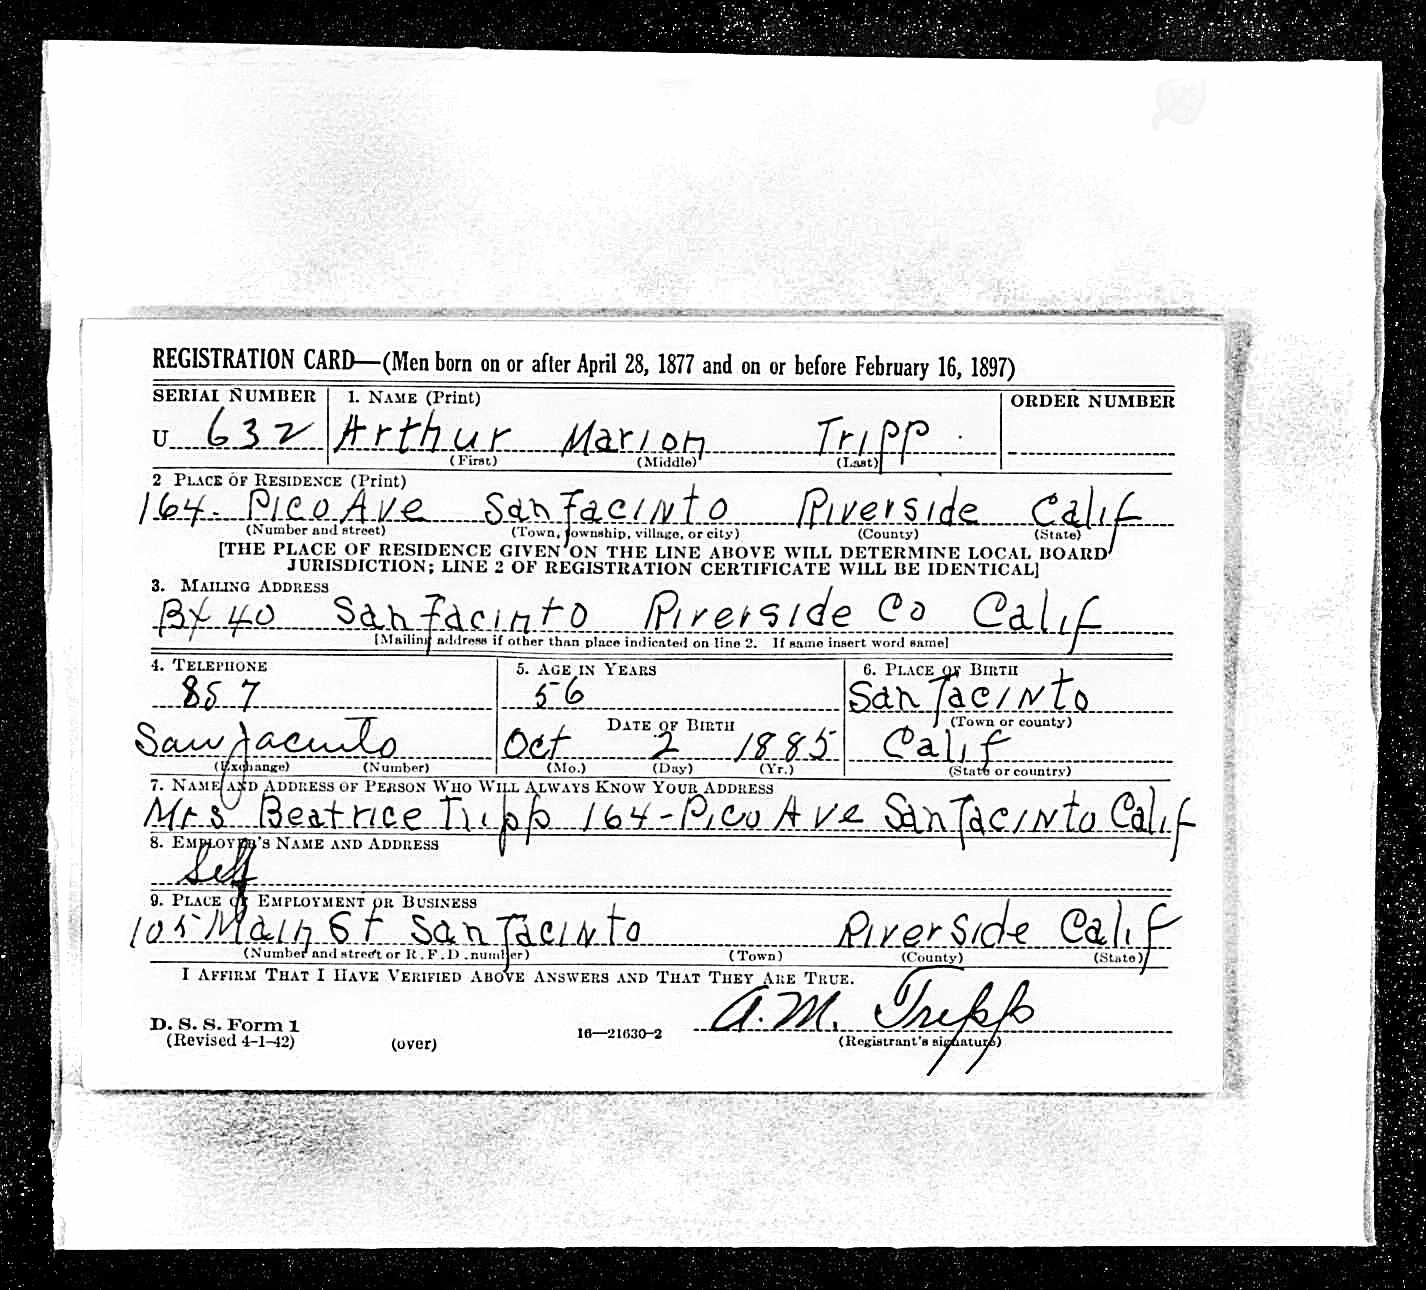 REGISTRATION CARD—(Men born on or after April 28, 1877 and on or before February 16, 1897)
SERIAL NUMBER 1. NAME (Print) ORDER NUMBER
U 632 Arthur Marion Tripp
(First) (Middle) (Last)
2 PLACE OF RESIDENCE (Print)
164 Pico Ave San Jacinto Riverside Calif
(Number and street) (Town, township, village, or city) (County) (State)
[THE PLACE OF RESIDENCE GIVEN ON THE LINE ABOVE WILL DETERMINE LOCAL BOARD
JURISDICTION; LINE 2 OF REGISTRATION CERTIFICATE WILL BE IDENTICAL]
3. MAILING ADDRESS
Bx 40 San Jacinto Riverside Co Calif
[Mailing address if other than place indicated on line 2. If same insert word same]
4. TELEPHONE 5. AGE IN YEARS 6. PLACE OF BIRTH
857 56 San Jacinto
DATE OF BIRTH (Town or county)
San Jacinto Oct 2 1885 Calif
(Exchange) (Number) (Mo.) (Day) (Yr.) (State or country)
7. NAME AND ADDRESS OF PERSON WHO WILL ALWAYS KNOW YOUR ADDRESS
Mrs Beatrice Tripp 164-Pico Ave San Jacinto Calif
8. EMPLOYER'S NAME AND ADDRESS
Self
9. PLACE OF EMPLOYMENT OR BUSINESS
105 Main St San Jacinto Riverside Calif
(Number and street or R. F. D. number) (Town) (County) (State)
I AFFIRM THAT I HAVE VERIFIED ABOVE ANSWERS AND THAT THEY ARE TRUE.
A. M. Tripp
D. S. S. Form 1
(Revised 4-1-42) (over) 16—21630-2 (Registrant's signature)